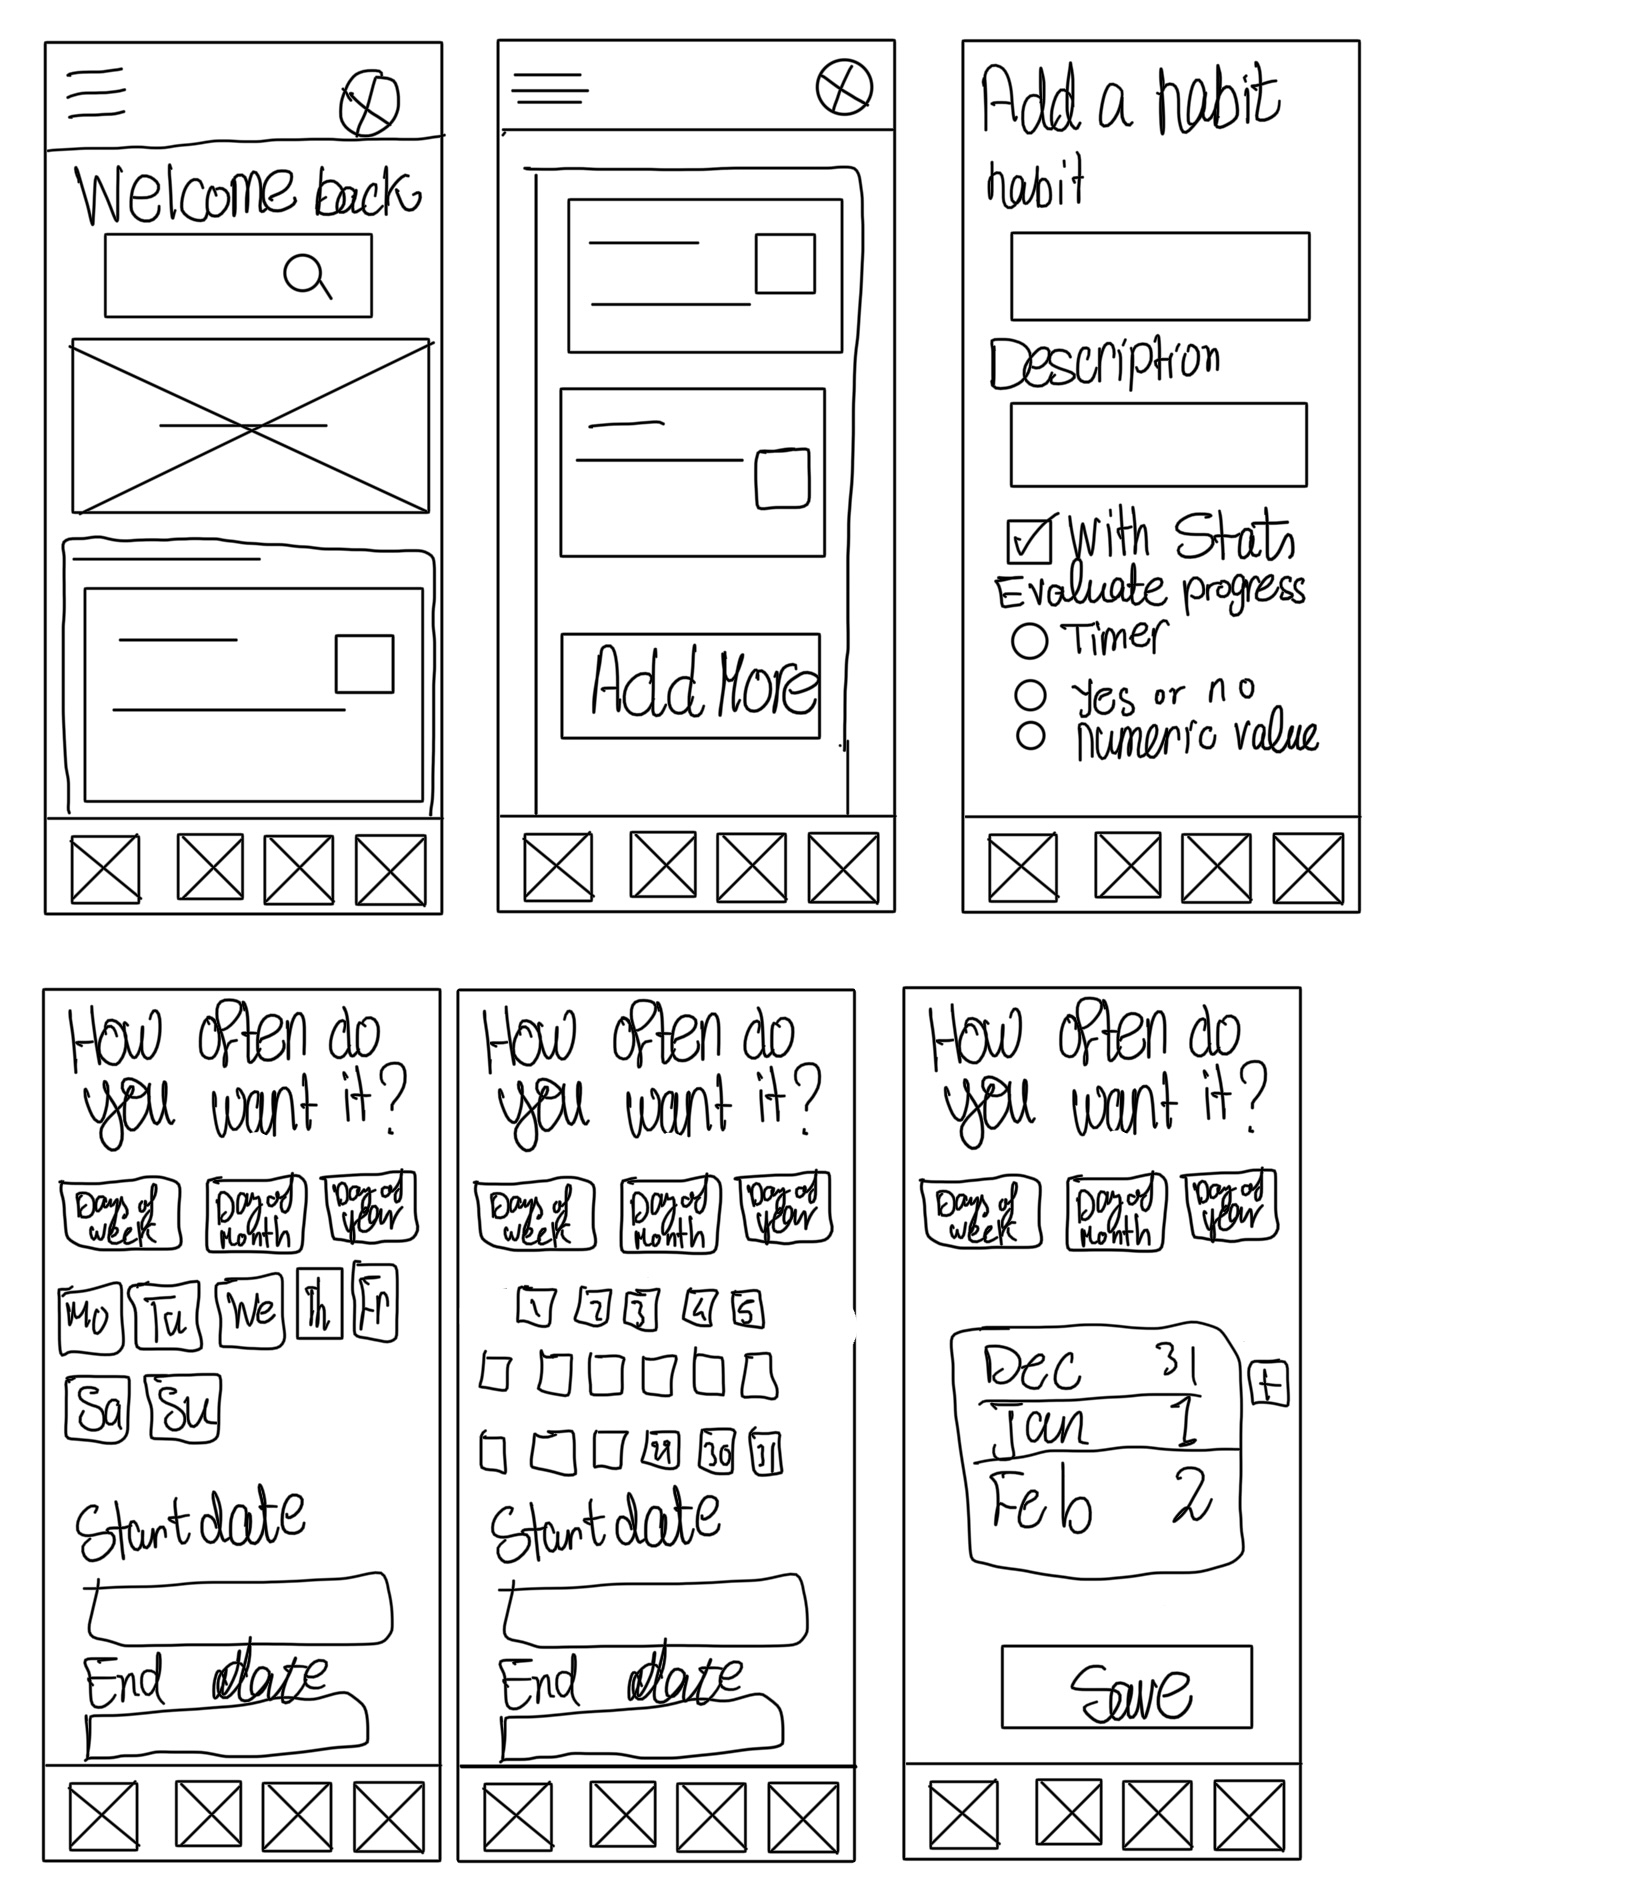 Welcome back
Add More
Add a habit
habit
Description
With Stats
Evaluate progress
Timer
yes or no
numeric value
How often do
you want it?
Days of
week
Day of
Month
Day of
year
Mo Tu We Th Fr
Sa Su
Start date
End date
How often do
you want it?
Days of
week
Day of
Month
Day of
year
1 2 3 4 5
29 30 31
Start date
End date
How often do
you want it?
Days of
week
Day of
Month
Day of
year
Dec 31
+
Jan 1
Feb 2
Save